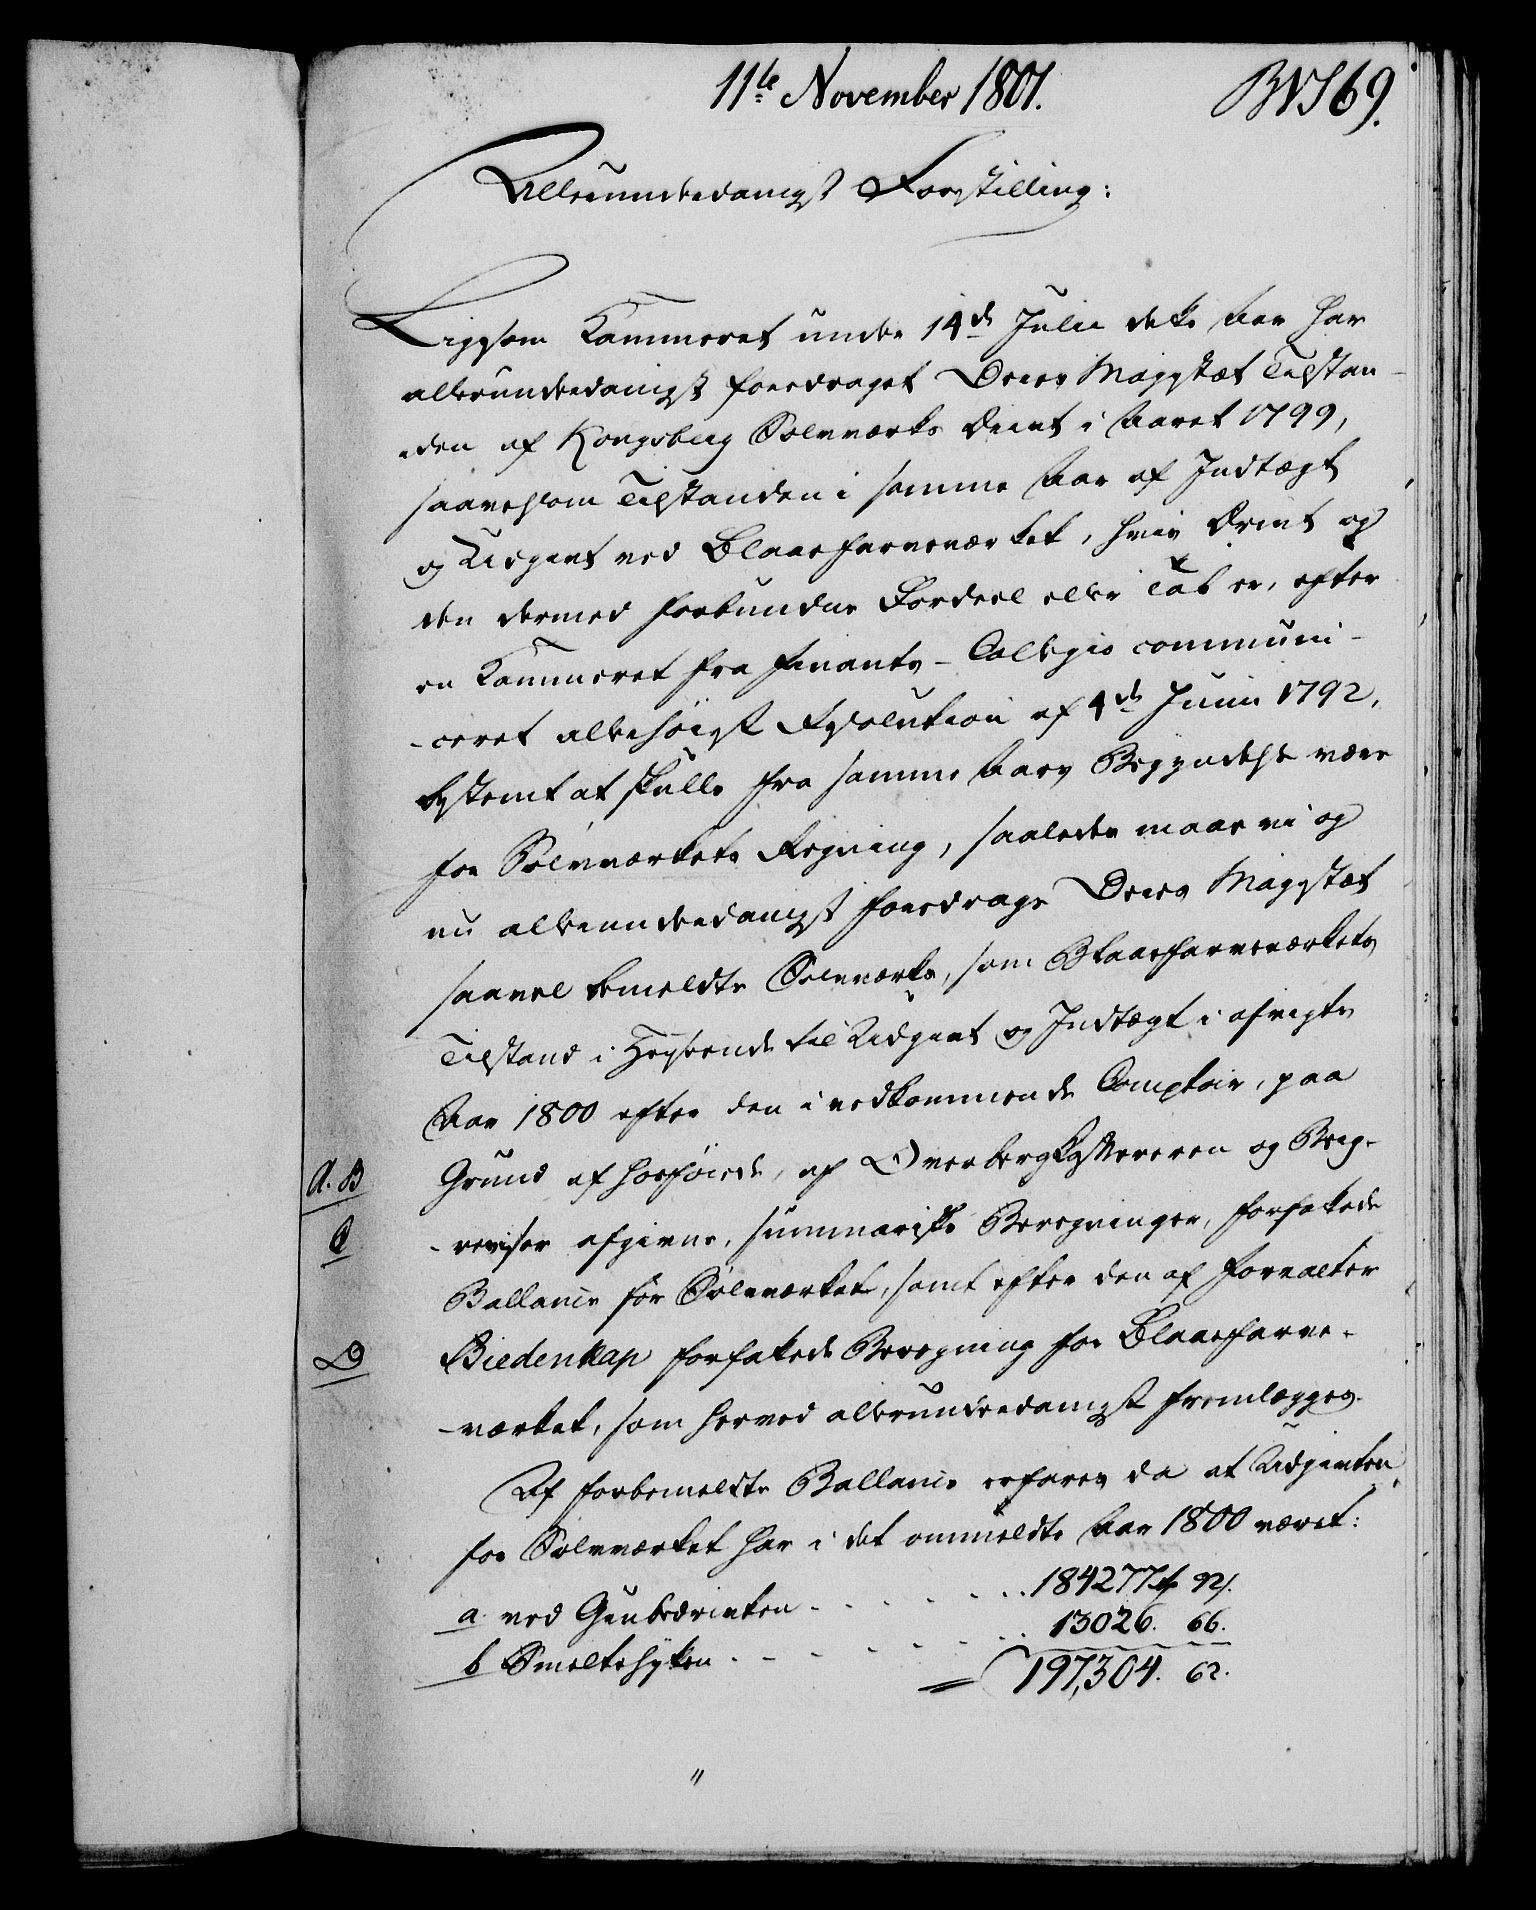 11te November 1801.
BVS 69.
Allerunderdanigst Forestilling:
Ligesom Kammeret under 14de Julii dette Aar har
allerunderdanigst foredraget Deres Majestæt Tilstan-
-den af Kongsberg Sølvværks Drivt i Aaret 1799,
saavelsom Tilstanden i samme Aar af Indtægt
og Udgivt ved Blaaefarveværket, hvis Drivt og
den dermed forbundne Fordeel eller Tab er, efter
en Kammeret fra Finants-Collegio communi-
-ceret allerhøigst Resolution af 4de Junii 1792,
bestemt at skulle fra samme Aars Begyndelse være
for Sølvværkets Regning, saaledes maae vi og
nu allerunderdanigst foredrage Deres Majestæt
saavel bemeldte Sølvværks, som Blaaefarveværkets
Tilstand i Henseende til Udgivt og Indtægt i afvigte
Aar 1800 efter den i vedkommende Comptoir, paa
A. B Grund af hosføiede, af Overbergkassereren og Berg-
C -revisor afgivne, summariske Beregninger, forfattede
Ballance for Sølvværket, samt efter den af Forvalter
D Biedenkap forfattede Beregning for Blaaefarve-
-værket, som herved allerunderdanigst fremlægges.
Af forbemeldte Ballance erfares da at Udgivten
for Sølvværket har i det ommeldte Aar 1800 været:
a. ved Grubedrivten . . . . . . 184277 rd 92 s.
b Smeltehytten . . . . . . 13026. 66.
= 197,304. 62.
"